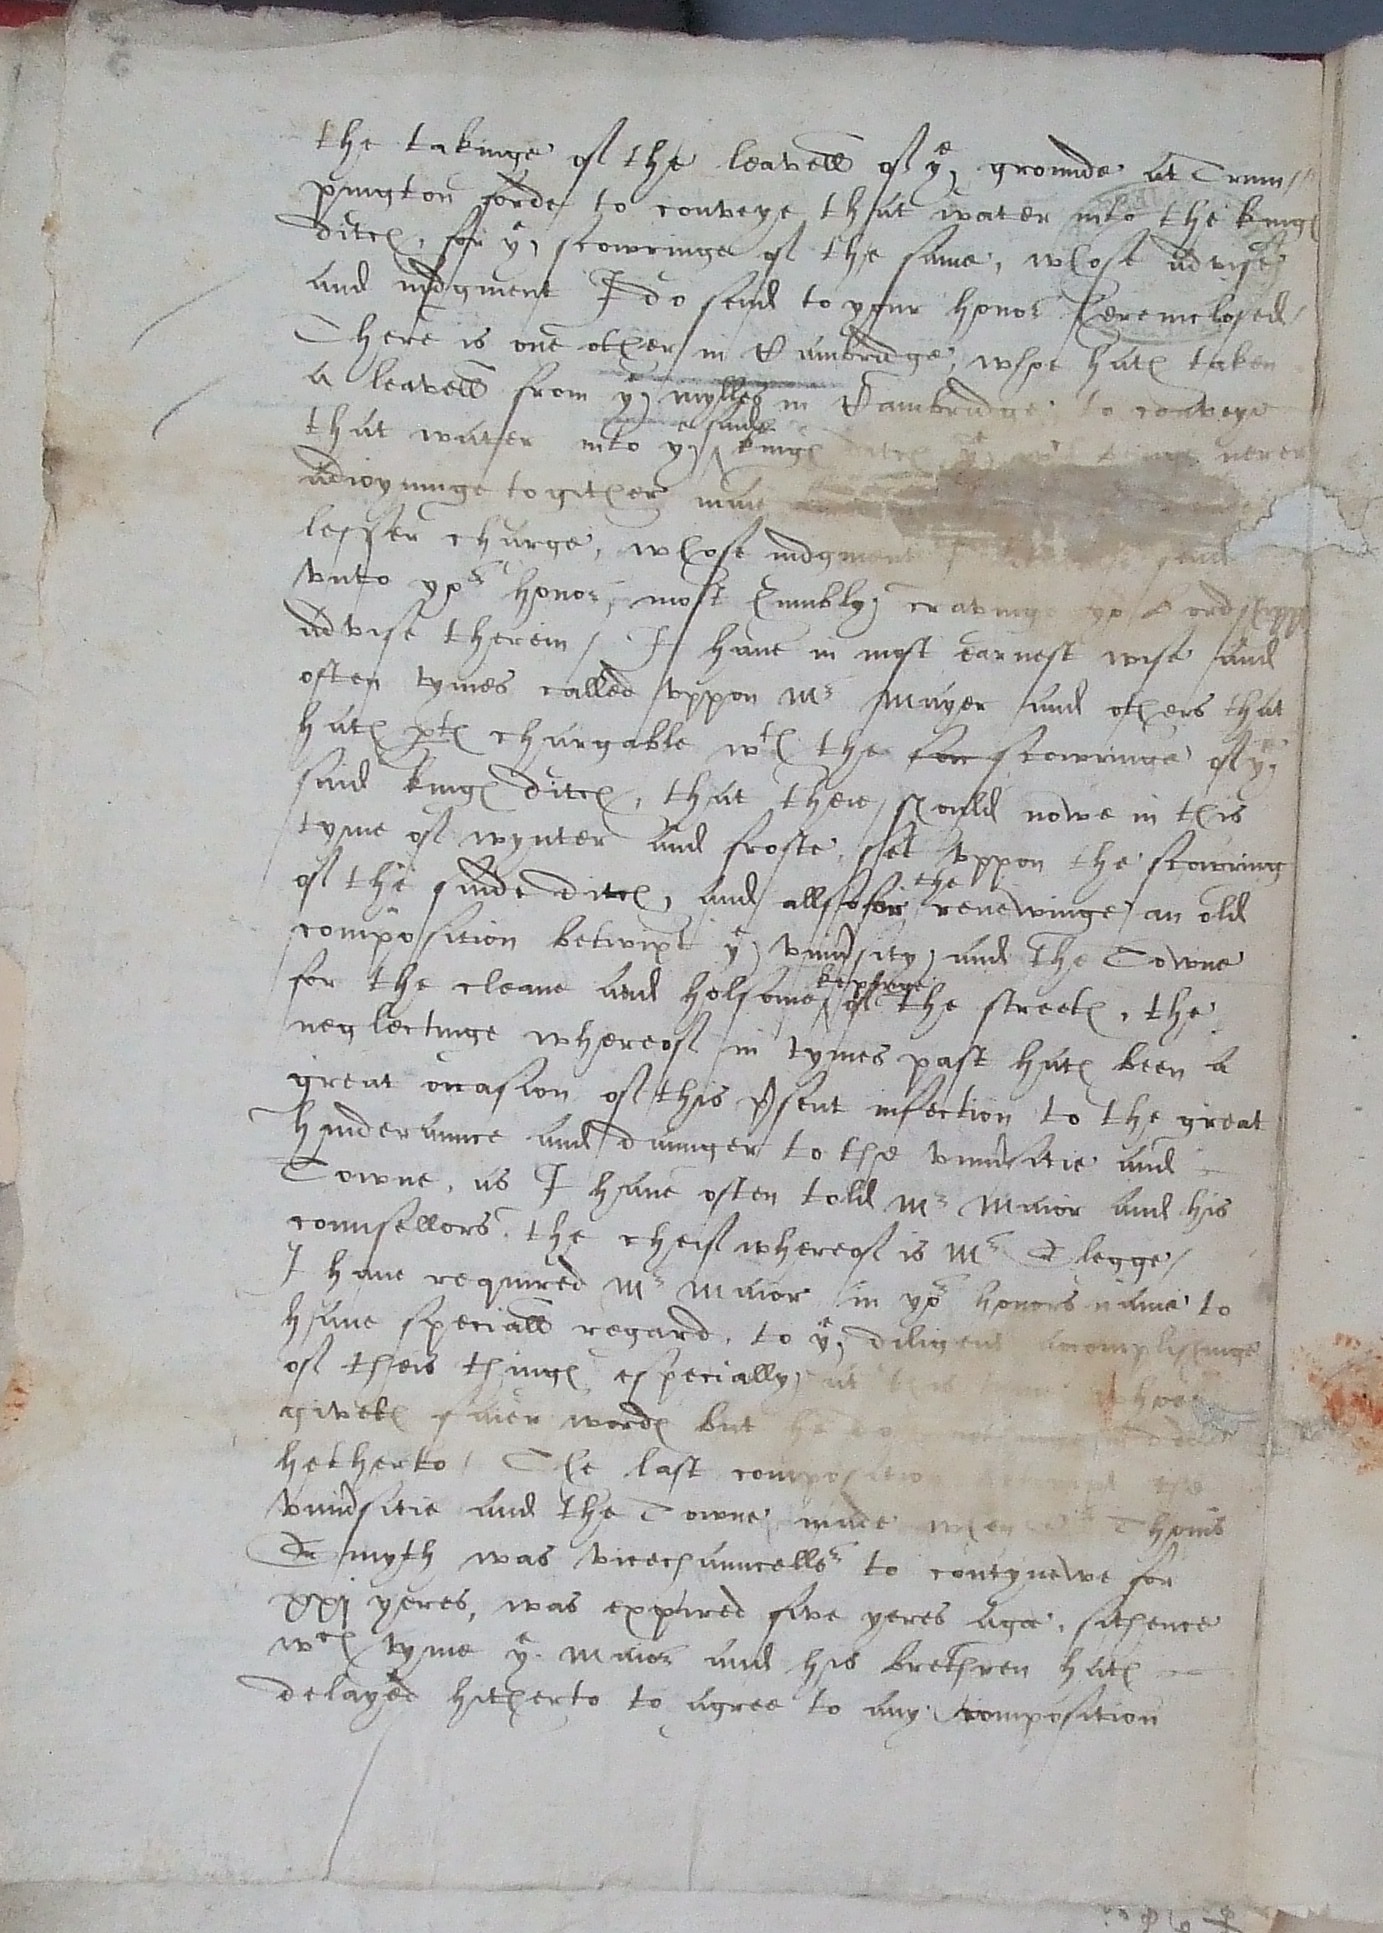 the takinge of the leavell of ye grounde at Trum/
pington forde to conveye that water into the kings
ditch, for ye scowringe of the same, whose advise
and iudgment I do send to your honor herein closed/
There is one other in Cambridge, whoe hath taken
a leavell from ye mylles in Cambridge to conveye
that water into ye saide kings ditch never
adioyninge togither
lesser charge, whose iudgment
vnto yor honor, most humbly cravinge yor Lordshipps
advise therein/ I have in most earnest wise and
often tymes called vppon Mr Mayer and others that
hath pts chargable wth the for scowringe of ye
said kings ditch, that their should nowe in this
tyme of wynter and froste, set vppon the scowring
of the saide ditch, and allso for the renewinge an old
composition betwixt ye vniversity and the Towne
for the cleane and holsome kepinge of the streets, the
neglectinge whereof in tymes past hath been a
great occasion of this present infection to the great
hynderaunce and daunger to the vniversitie and
Towne, as I have often told Mr Maior and his
counsellors, the cheif whereof is Mr Clegge/
I have required Mr Maior in yor honors name to
have speciall regard, to ye diligent accomplishinge
of theis things especially at this
giveth faier words but he
hetherto/ The last composition betwixt the
vniversitie and the Towne made when Sr Thoms
Smyth was vicechauncellor to contynewe for
xxj yeres, was expired five yeres agoe, sithence
wch tyme ye Maior and his brethren hath
delayed hitherto to agree to any composition